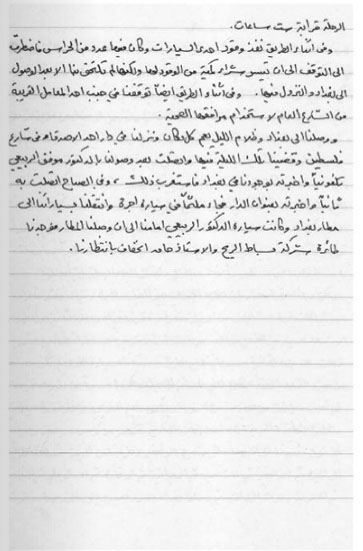 الرحلة قرابة ست ساعات.
وفي اثناء الطريق نفذ وقود احدى السيارات وكان فيها عدد من الحراس فاضطرت
الى التوقف الى ان تيسر شراء كمية من الوقود لها ولكنها لم تلتحق بنا الا بعد الوصول
الى بغداد والنزول فيها. وفي اثناء الطريق ايضاً توقفنا في جنب احد المعامل القريبة
من الشارع العام لاستخدام مرافقها الصحية.
ووصلنا الى بغداد وظلام الليل يعم كل مكان ونزلنا في دار احد الاصدقاء في شارع
فلسطين وقضينا تلك الليلة فيها واتصلت بعد وصولنا بالدكتور موفق الربيعي
تلفونياً واخبرته بوجودنا في بغداد فاستغرب ذلك، وفي الصباح اتصلت به
ثانياً واخبرته بعنوان الدار فجاء ملثماً في سيارة اجرة وانتقلنا بسياراتنا الى
مطار بغداد وكانت سيارة الدكتور الربيعي امامنا الى ان وصلنا المطار فوجدنا
طائرة شركة بساط الريح والاستاذ حامد الخفاف بانتظارنا.